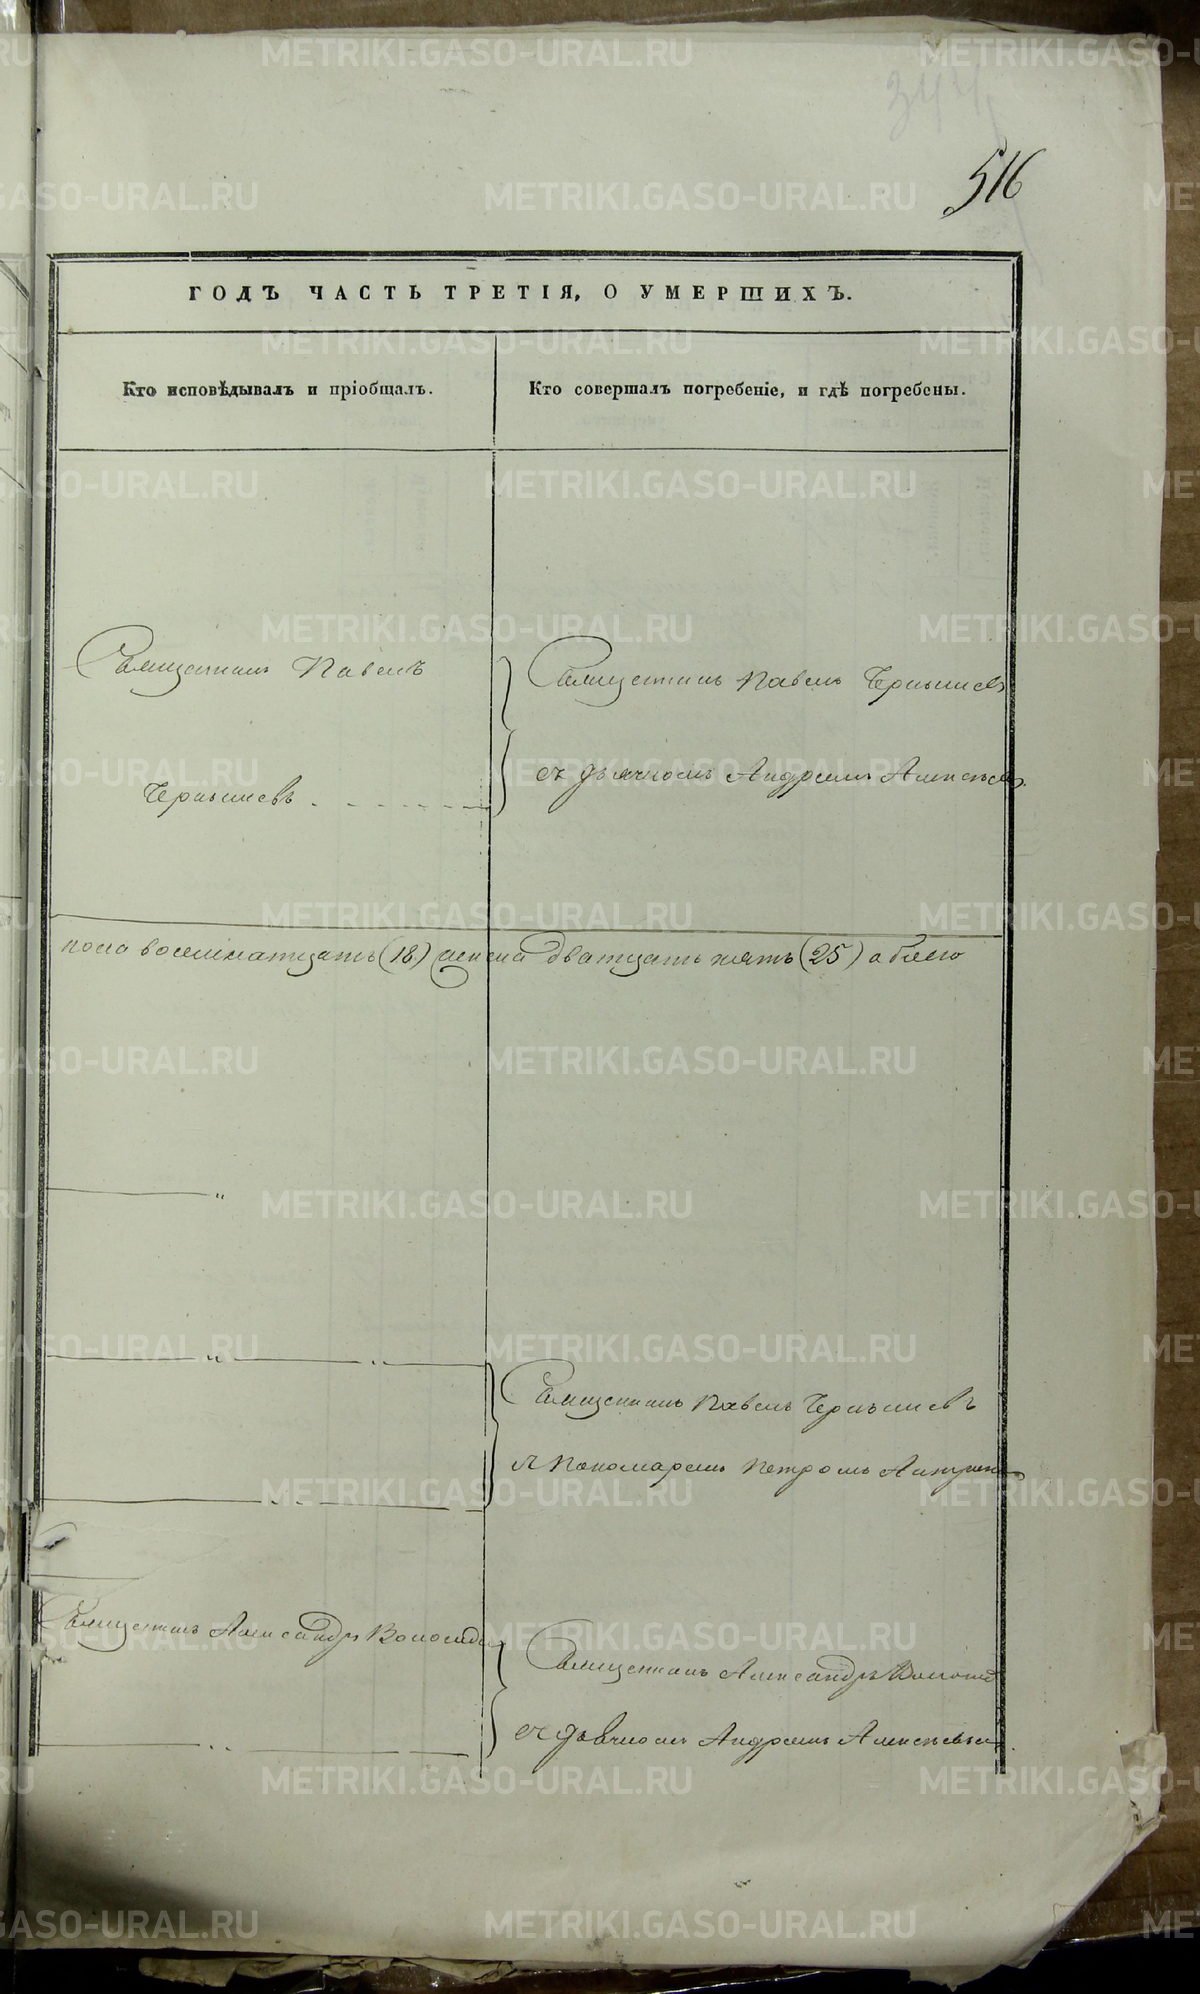 344
516
ГОДЪ ЧАСТЬ ТРЕТІЯ, О УМЕРШИХЪ.
Кто исповѣдывалъ и пріобщалъ.
Кто совершалъ погребеніе, и гдѣ погребены.
Священникъ Павелъ
Чернышевъ
Священникъ Павелъ Чернышевъ
съ дьячкомъ Андреемъ Алексѣев.
пола восемнатцать (18) женска дватцать пять (25) а обоего
Священникъ Павелъ Чернышевъ
съ Пономаремъ Петромъ
Священникъ Александръ
Священникъ Александръ
съ дьячкомъ Андреемъ Алексѣевы
METRIKI.GASO-URAL.RU